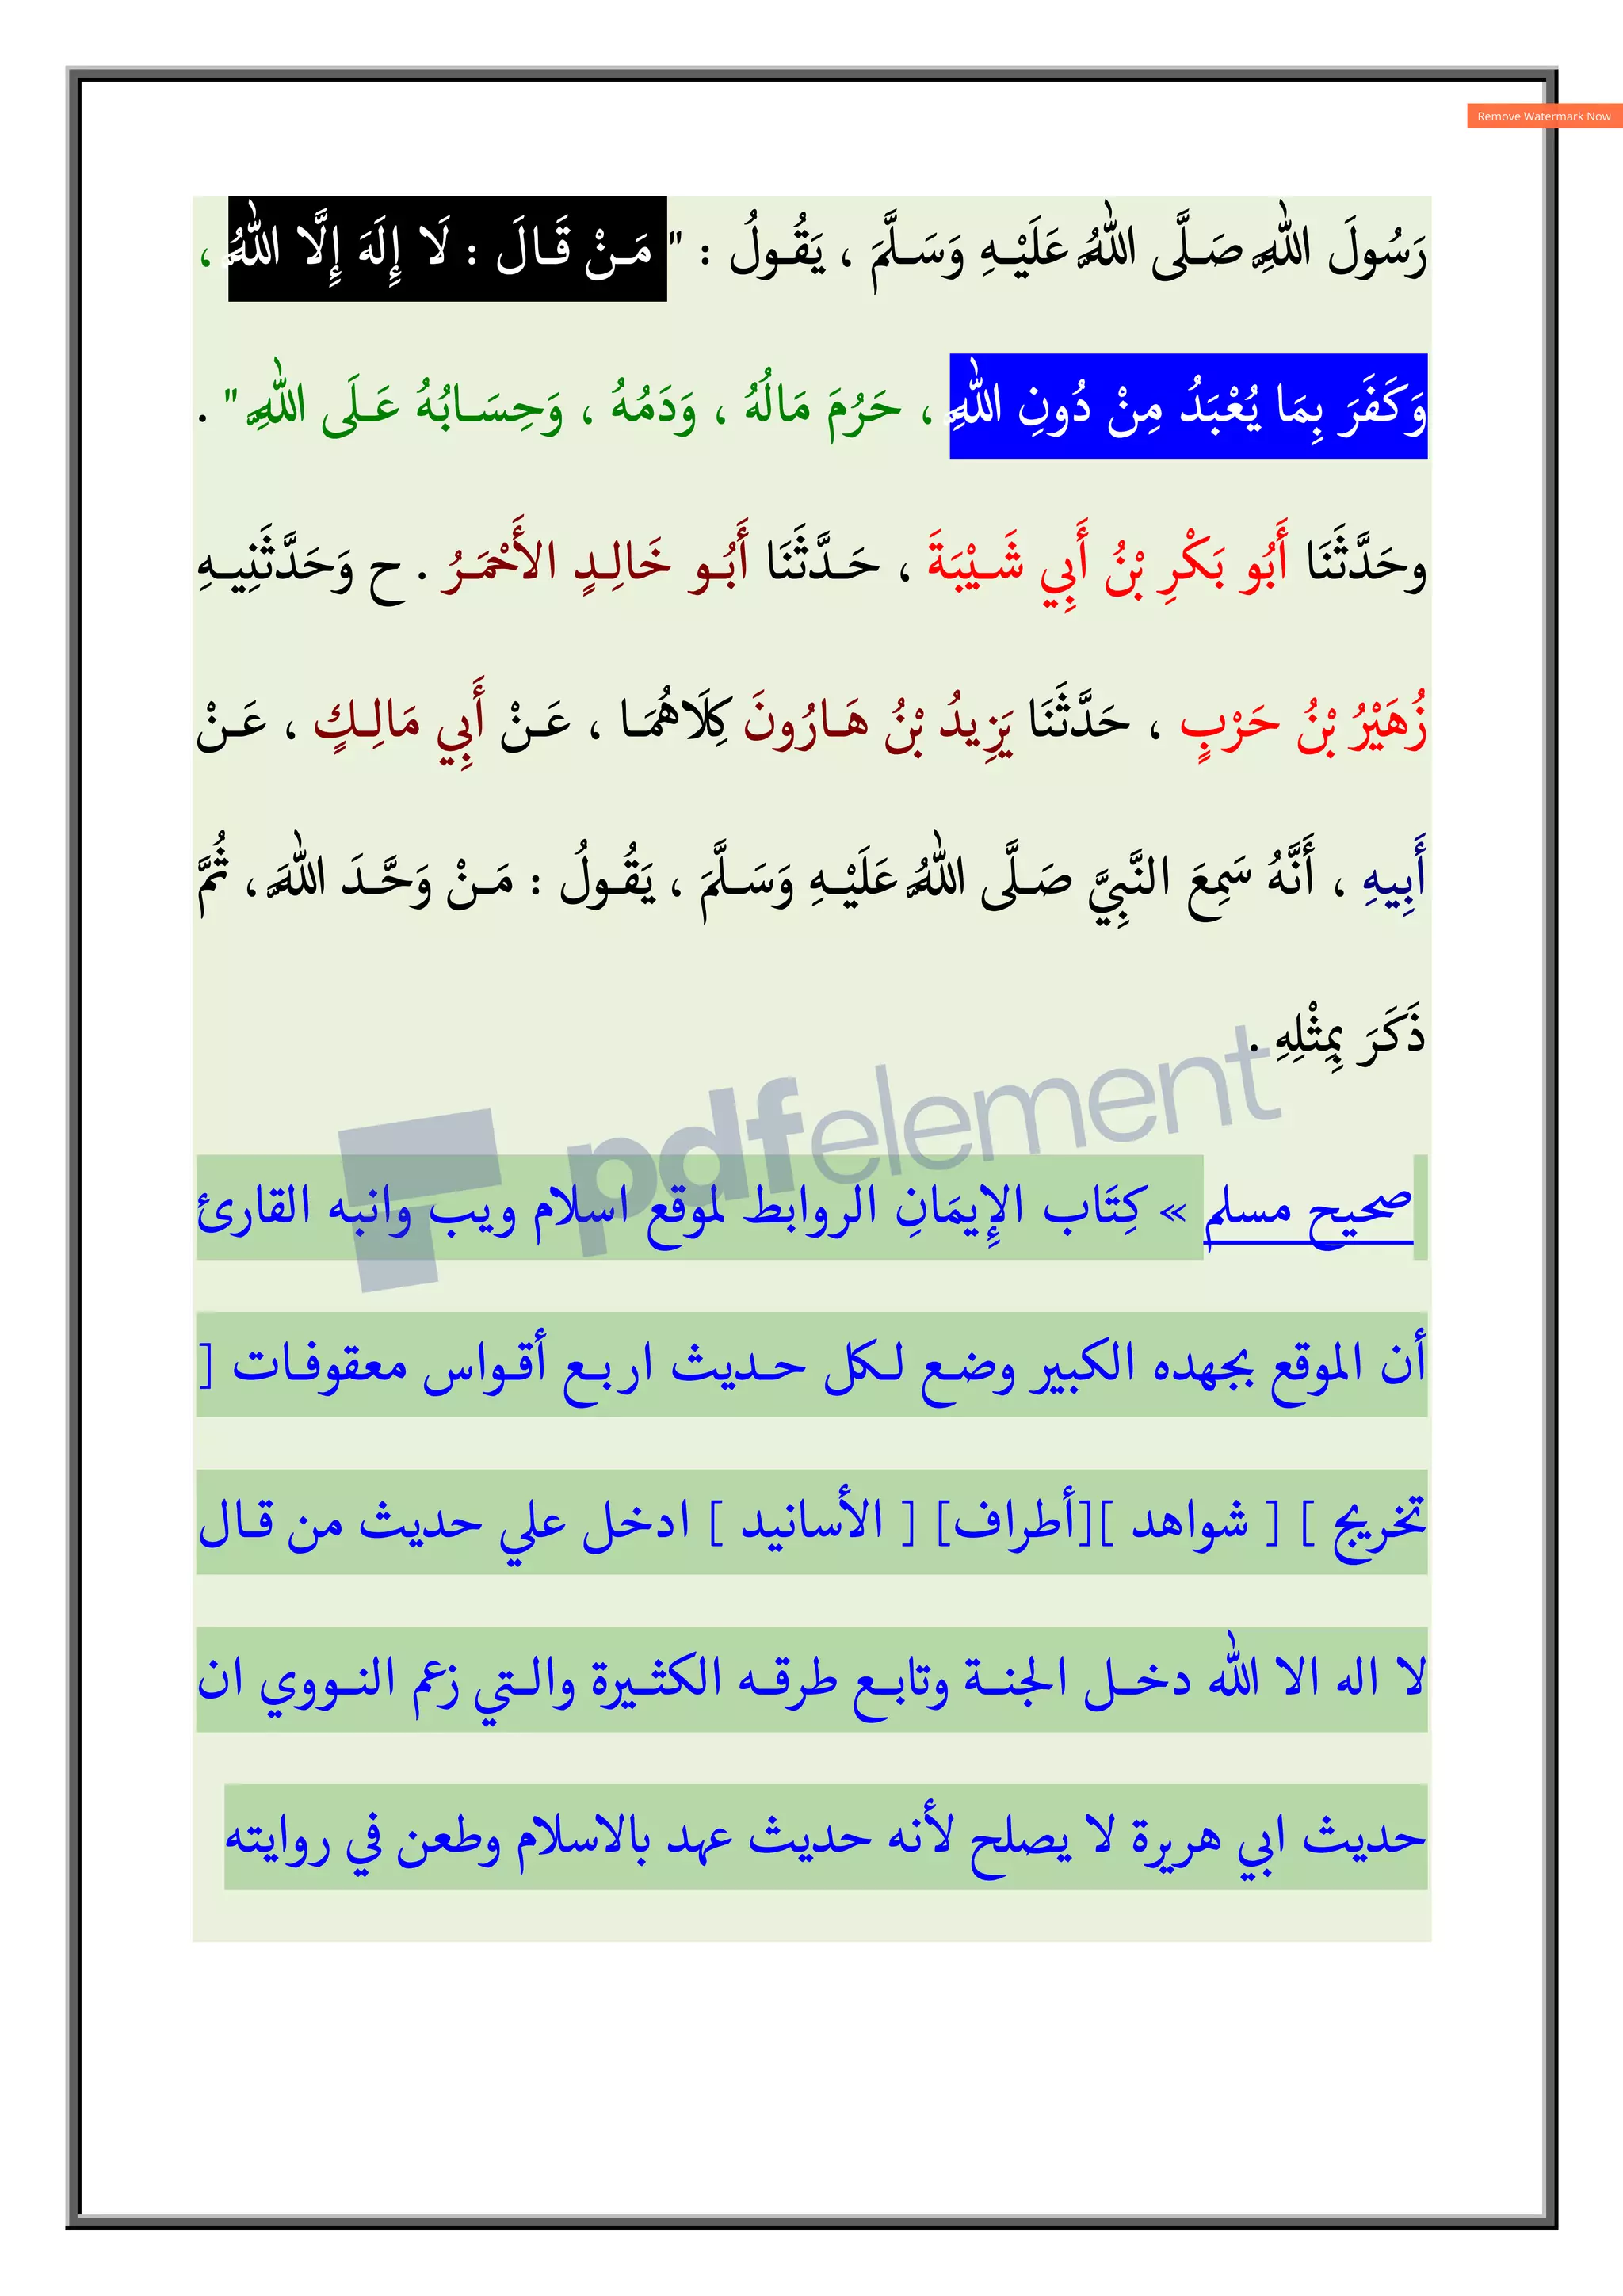 Remove Watermark Now
رَسُولَ اللَّهِ صَلَّى اللَّهُ عَلَيْهِ وَسَلَّمَ ، يَقُولُ : " مَنْ قَالَ : لَا إِلَهَ إِلَّا اللَّهُ ،
وَكَفَرَ بِمَا يُعْبَدُ مِنْ دُونِ اللَّهِ ، حَرُمَ مَالُهُ ، وَدَمُهُ ، وَحِسَابُهُ عَلَى اللَّهِ " .
وحَدَّثَنَا أَبُو بَكْرِ بْنُ أَبِي شَيْبَةَ ، حَدَّثَنَا أَبُو خَالِدٍ الأَحْمَرُ . ح وَحَدَّثَنِيهِ
زُهَيْرُ بْنُ حَرْبٍ ، حَدَّثَنَا يَزِيدُ بْنُ هَارُونَ كِلَاهُمَا ، عَنْ أَبِي مَالِكٍ ، عَنْ
أَبِيهِ ، أَنَّهُ سَمِعَ النَّبِيَّ صَلَّى اللَّهُ عَلَيْهِ وَسَلَّمَ ، يَقُولُ : مَنْ وَحَّدَ اللَّهَ ، ثُمَّ
ذَكَرَ بِمِثْلِهِ .
pdfelement
صحيح مسلم » كِتَاب الإِيمَانِ الروابط لموقع اسلام ويب وانبه القارئ
أن الموقع بجهده الكبير وضع لكل حديث اربع أقواس معقوفات [
تخريج ] [ شواهد ][أطراف] [ الأسانيد ] ادخل علي حديث من قال
لا اله الا الله دخل الجنة وتابع طرقه الكثيرة والتي زعم النووي ان
حديث ابي هريرة لا يصلح لأنه حديث عهد بالاسلام وطعن في روايته